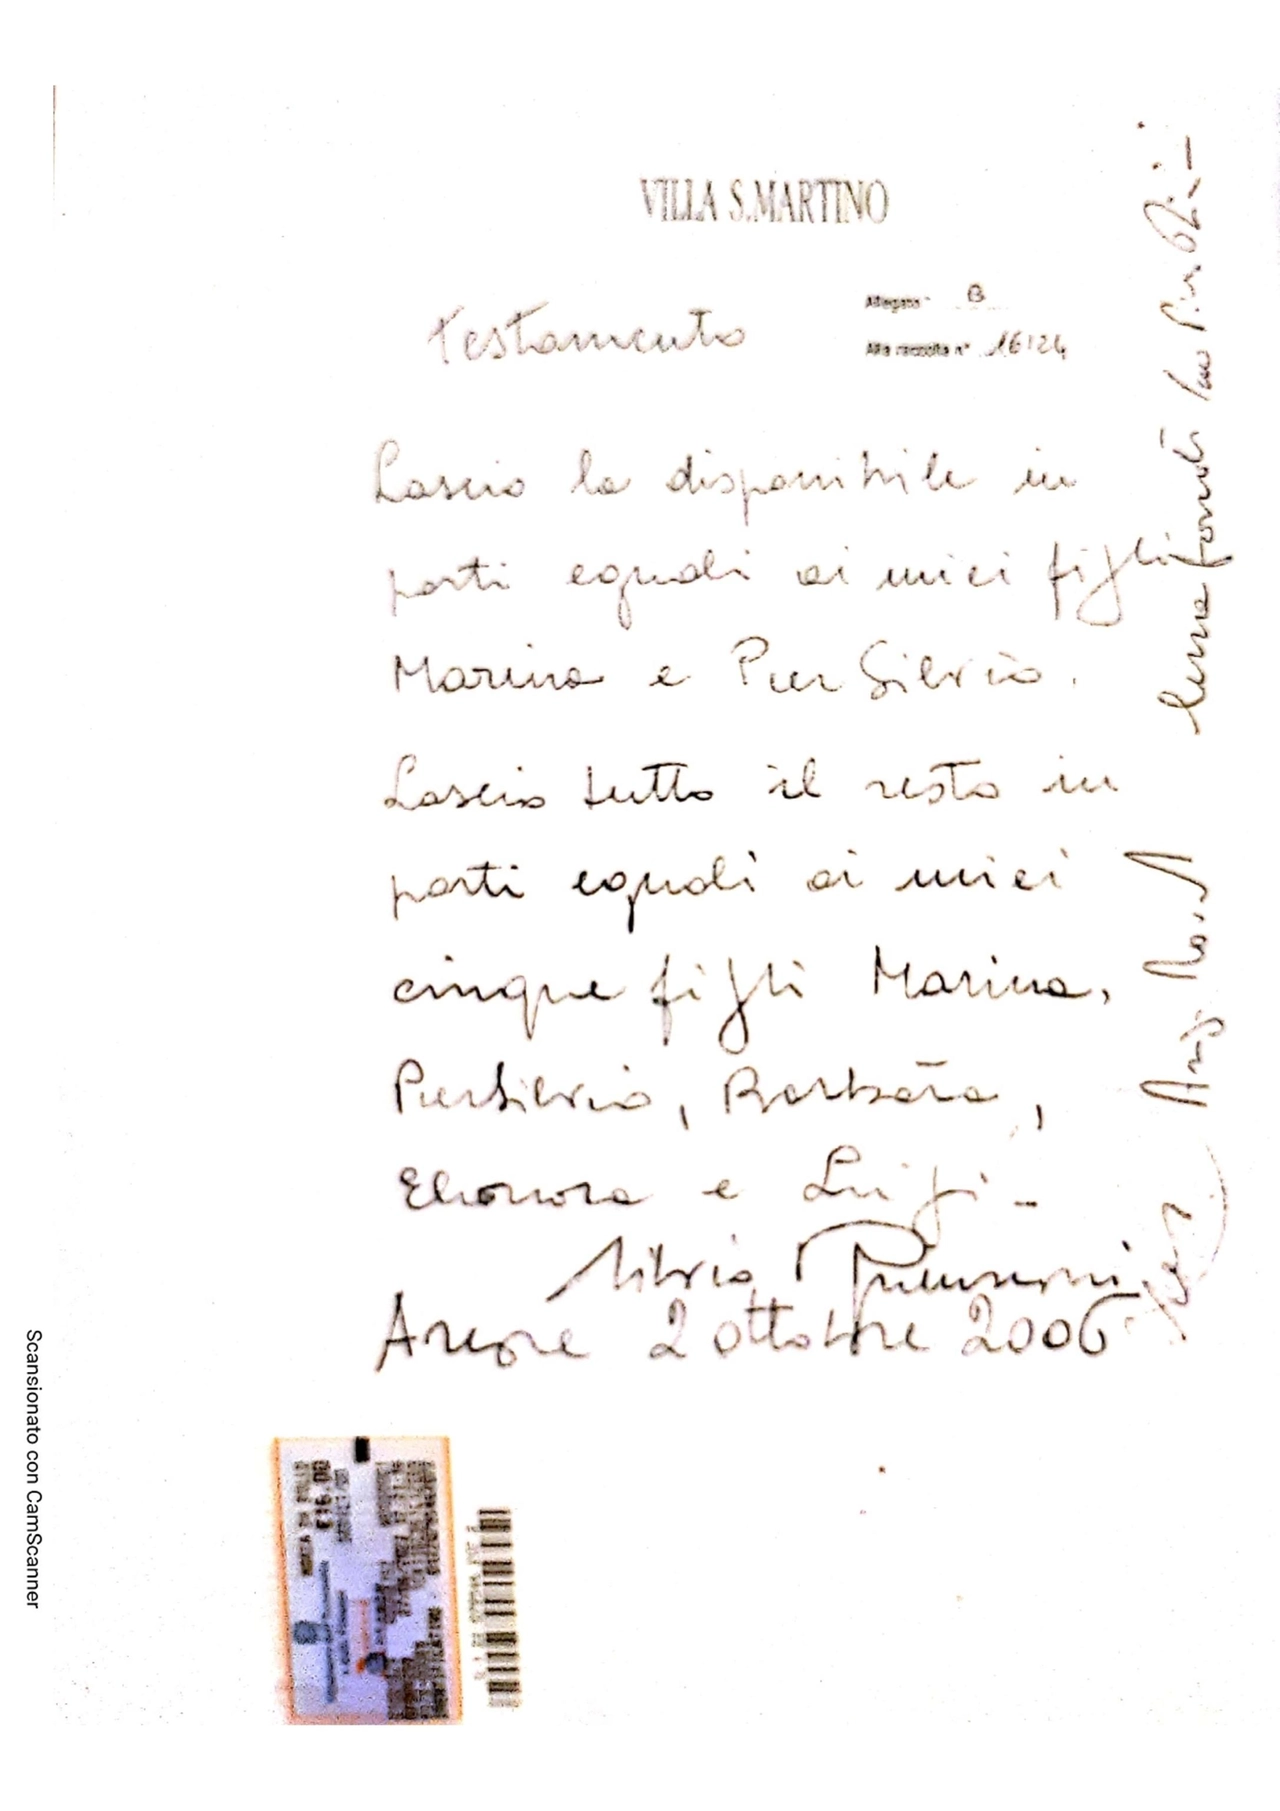 VILLA S.MARTINO
Allegato " B
Testamento
Alla raccolta n° 16124
Lascio la disponibile in
parti eguali ai miei figli
Marina e Pier Silvio.
Lascio tutto il resto in
parti eguali ai miei
cinque figli Marina,
PierSilvio, Barbara,
Eleonora e Luigi -
Silvio Berlusconi
Arcore 2 ottobre 2006
Scansionato con CamScanner